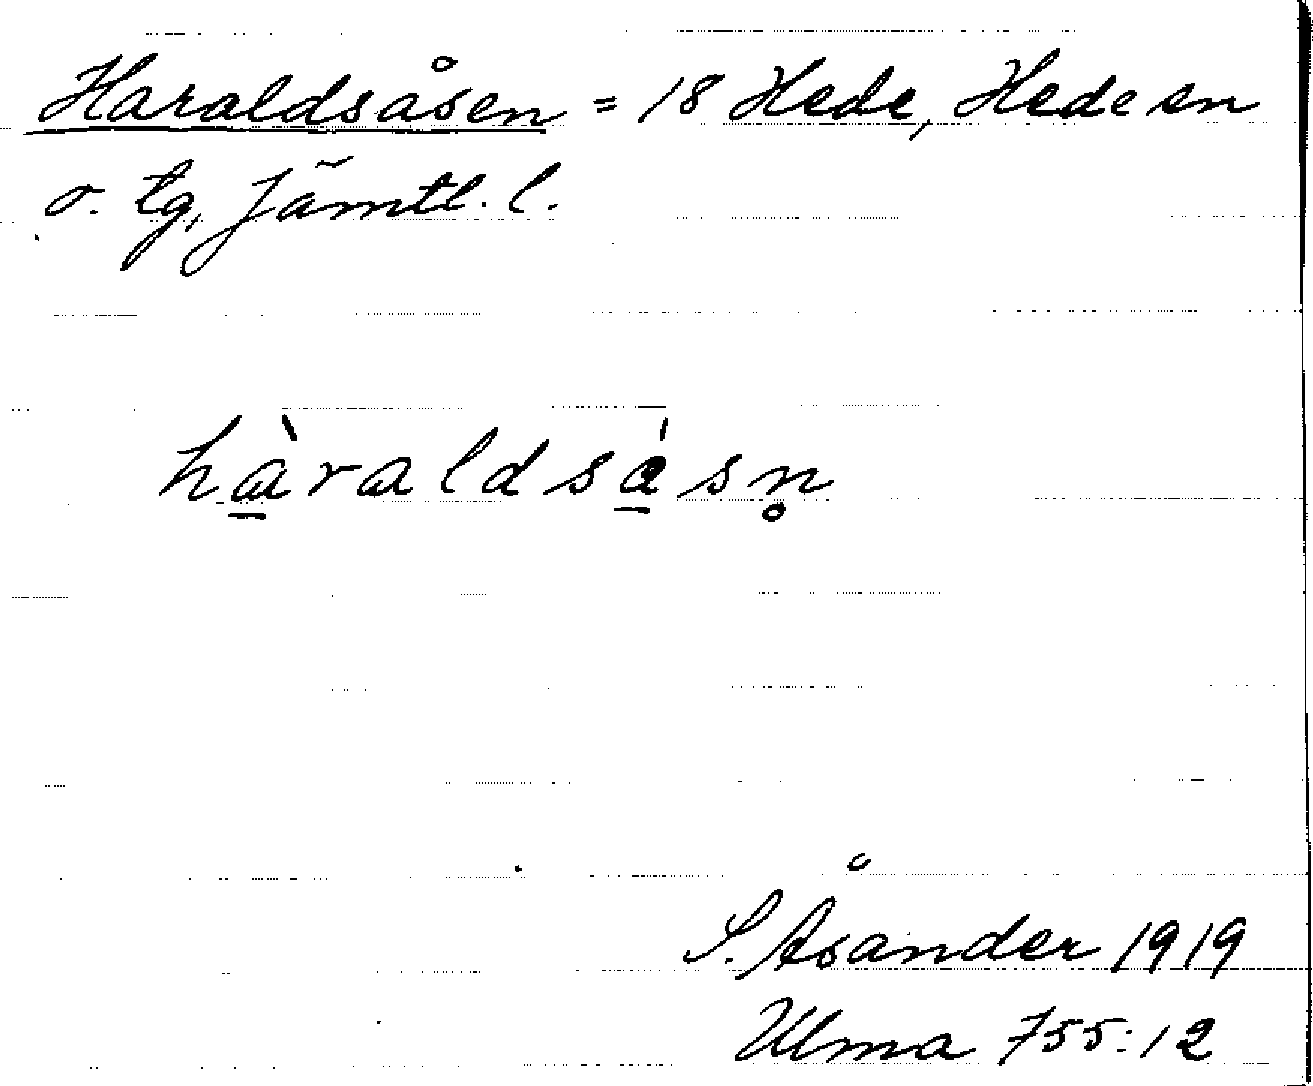 Haraldsåsen = 18 Hede, Hede sn
o. tg, Jämtl. l.
hàraldsa̱̍sn̥
S. Åsander 1919
Ulma 755:12